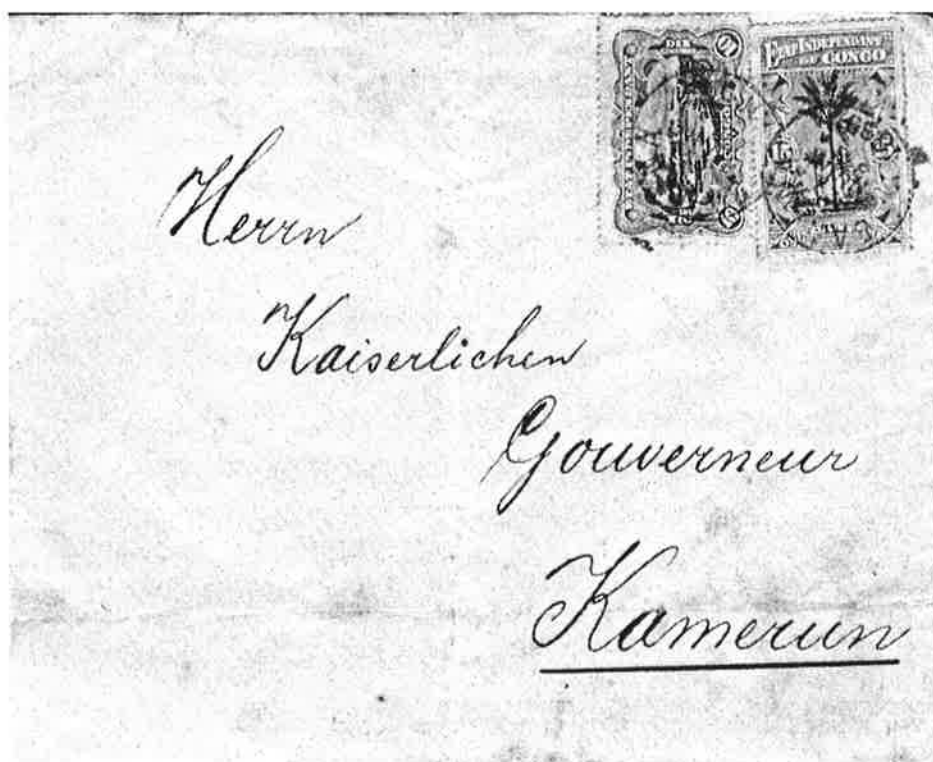 ETAT INDÉPENDANT
DU CONGO
DIX
10
Herrn
Kaiserlichen
Gouverneur
Kamerun